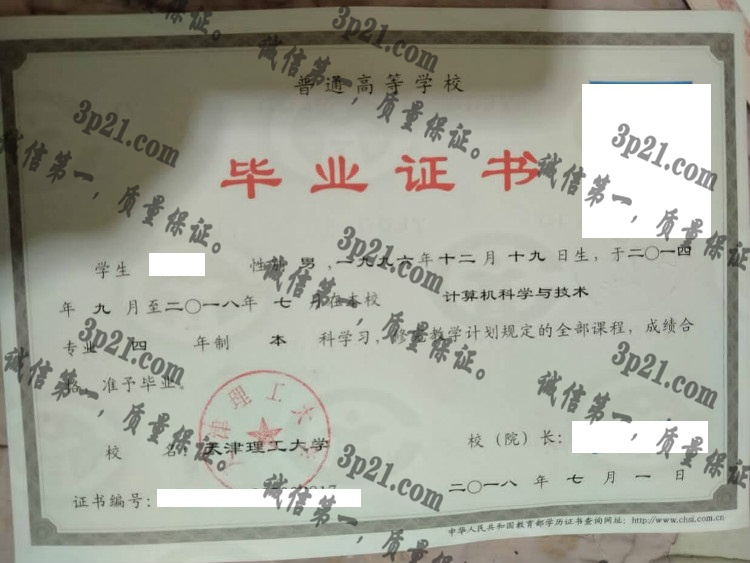 普通高等学校
毕业证书
学生 性别 男，一九九六年十二月十九日生，于二〇一四
年九月至二〇一八年七月在本校 计算机科学与技术
专业 四 年制 本 科学习，修完教学计划规定的全部课程，成绩合
格，准予毕业。
校 名：天津理工大学
校（院）长：
证书编号：
二〇一八年七月一日
中华人民共和国教育部学历证书查询网址：http://www.chsi.com.cn
天津理工大学
3p21.com
诚信第一，质量保证。
3p21.com
诚信第一，质量保证。
3p21.com
诚信第一，质量保证。
3p21.com
诚信第一，质量保证。
3p21.com
诚信第一，质量保证。
3p21.com
诚信第一，质量保证。
3p21.com
诚信第一，质量保证。
3p21.com
诚信第一，质量保证。